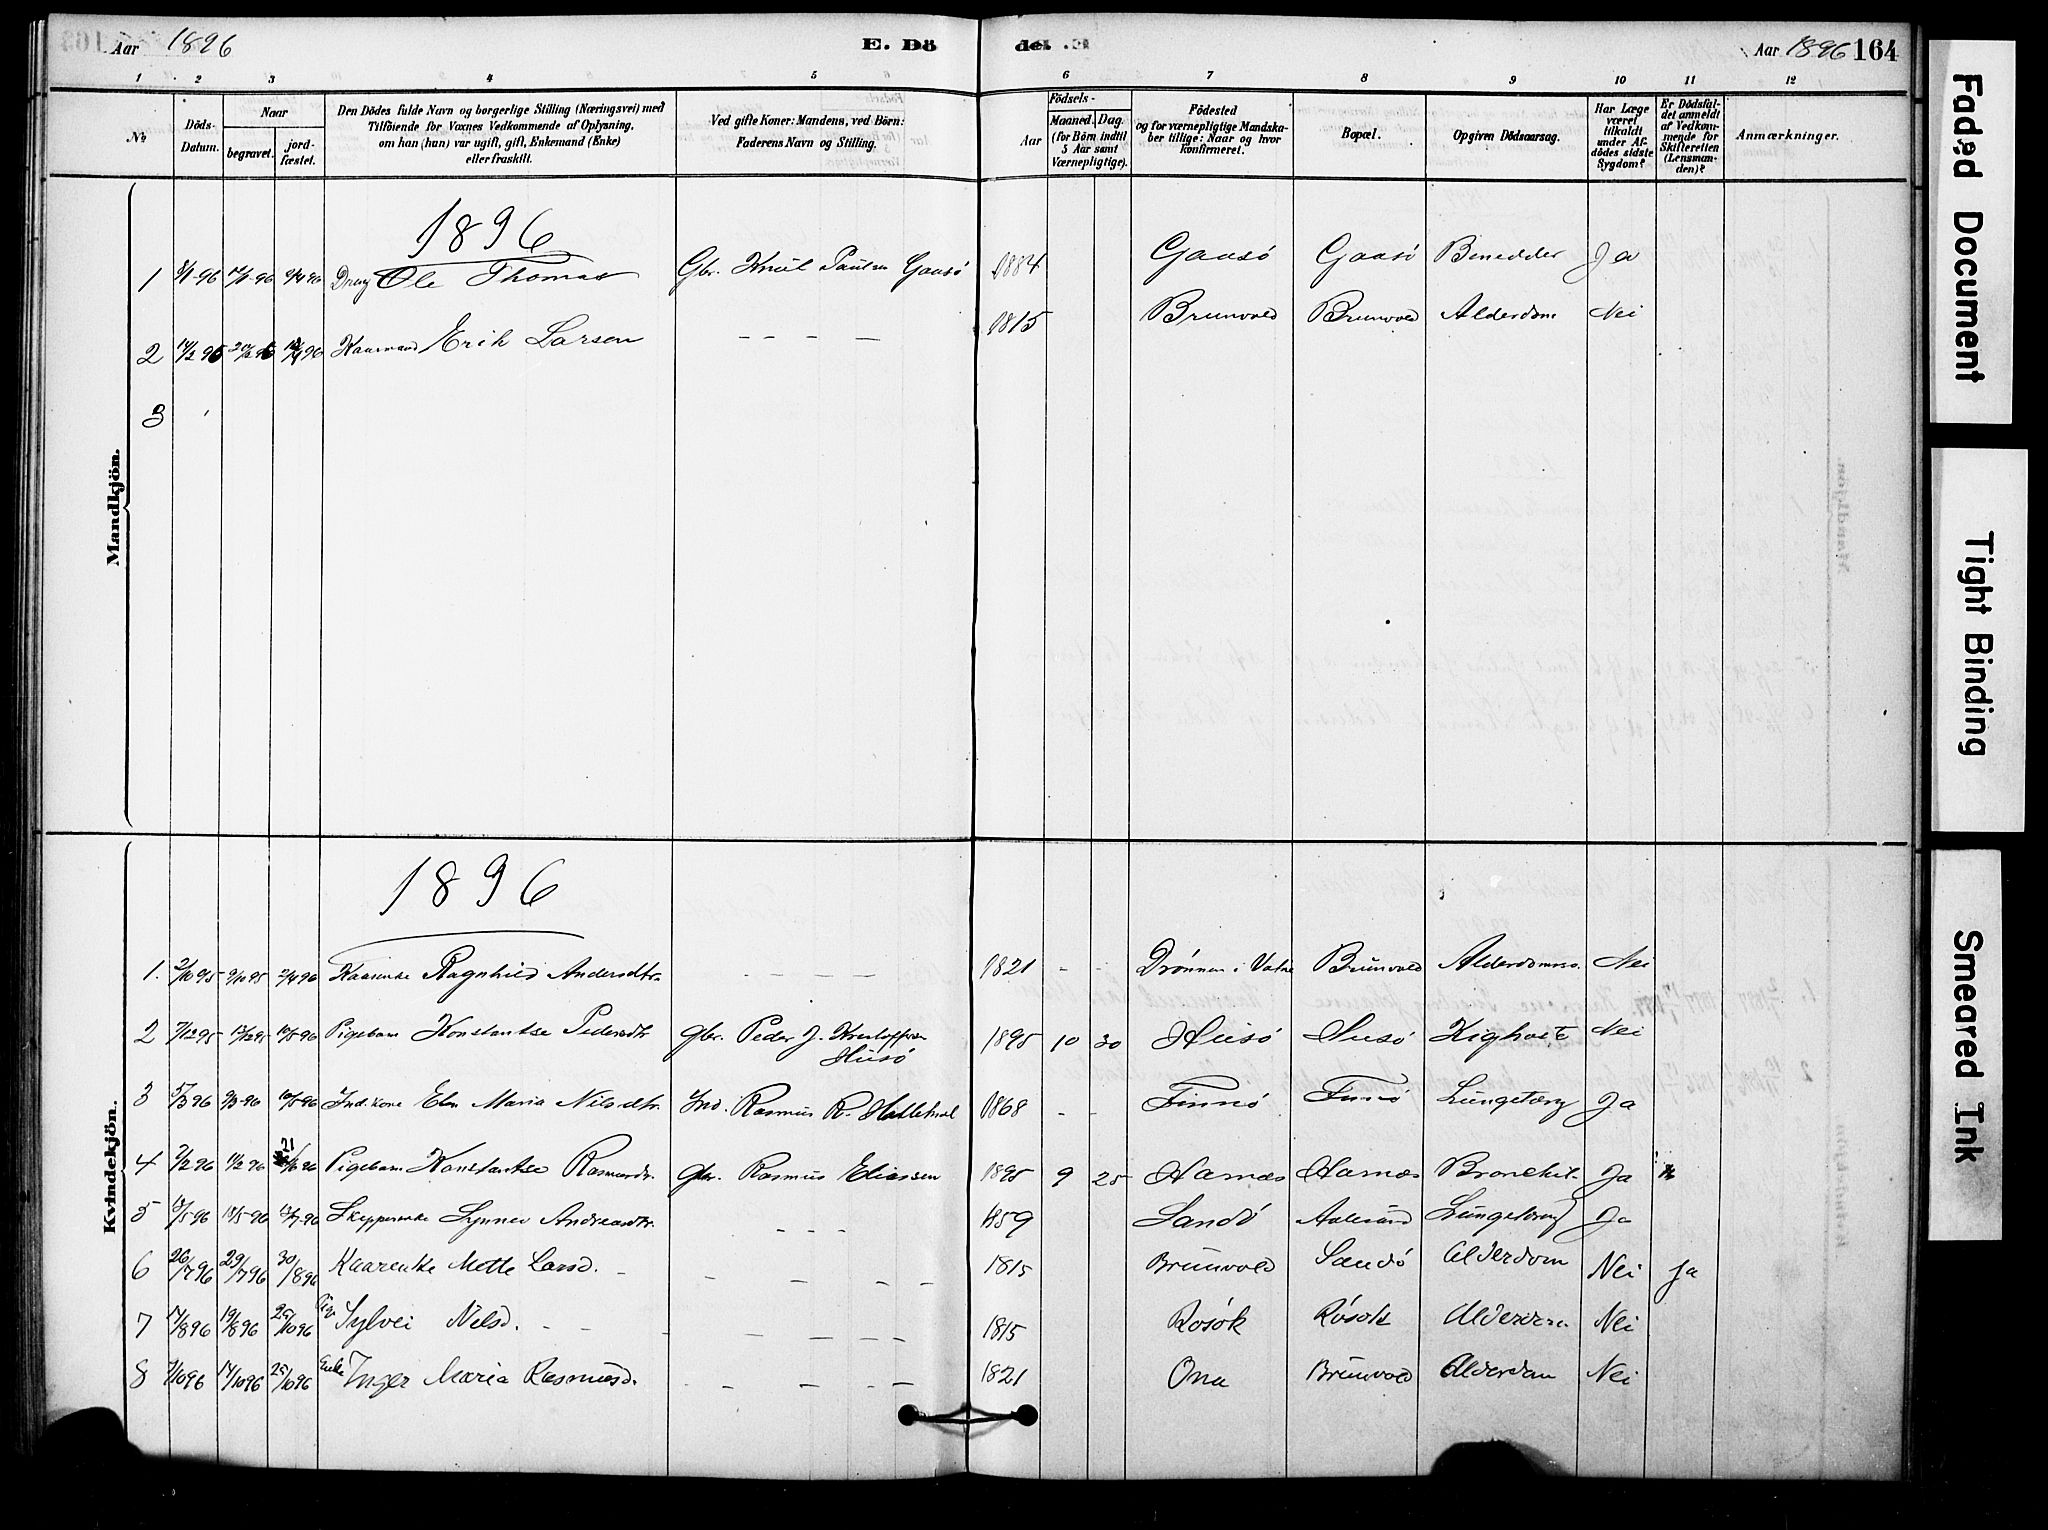 Aar 1896
E. Dö
de. .E
Aar 1896 164
1 2 3 4 5 6 7 8 9 10 11 12
№
Döds-
Datum.
Naar
begravet.
jord-
fæstet.
Den Dödes fulde Navn og borgerlige Stilling (Næringsvei) med
Tilföiende for Voxnes Vedkommende af Oplysning,
om han (hun) var ugift, gift, Enkemand (Enke)
eller fraskilt.
Ved gifte Koner: Mandens, ved Börn:
Faderens Navn og Stilling.
Födsels-
Aar
Maaned.
Dag.
(for Börn indtil
5 Aar samt
Værnepligtige).
Födested
og for værnepligtige Mandska-
ber tillige: Naar og hvor
konfirmeret.
Bopæl.
Opgiven Dödsaarsag.
Har Læge
været
tilkaldt
under Af-
dödes sidste
Sygdom?
Er Dödsfal-
det anmeldt
af Vedkom-
mende for
Skifteretten
(Lensman-
den)?
Anmærkninger.
Mandkjön.
1896
1 Dreng Ole Thomas Gbr. Knut Paulsen Gaasö 1884 Gaasö Gaasö Benedder Ja
2 14/2 96 Kaarmand Erik Larsen - - - - 1815 Brunvold Brunvold Alderdom Nei
3
Kvindekjön.
1896
1. 2/10 95 9/10 95 2/4 96 Kaarenke Ragnhild Andersdtr. - - - - 1821 - - Drönnen i Vatne Brunvold Alderdomss. Nei
2 7/12 95 13/12 95 10/5 96 Pigebarn Konstantse Pedersdtr Gbr. Peder J. Kristoffersen
Husö 1895 10 30 Husö Husö Kighoste Nei
3 5/3 96 9/3 96 10/5 96 Ind. kone Elen Maria Nilsdtr. Ind. Rasmus R. 1868 - - Finnö Finnö Lungetæring Ja
4 2/2 96 11/2 96 21 96 Pigebarn Konstantse Rasmusdtr. Gbr. Rasmus Eliassen 1895 9 25 Harnæs Harnæs Bronchit. Ja
5 13/5 96 18/5 96 12/7 96 Skipperenke Synnev Andreasdtr. - - - 1859 Sandö Aalesund Lungetæring Ja
6 26/7 96 29/7 96 30/8 96 Kaarenke Mette Larsd. - - - - - 1815 Brunvold Sandö Alderdom Nei Ja
7 14/8 96 19/8 96 25/10 96 Pige Sylvei Nilsd. - - - - - - - 1815 Rösok Rösok Alderdom Nei
8 7/10 96 14/10 96 25/10 96 Enke Inger Maria Rasmusd. - - - - 1821 Ona Brunvold Alderdom Nei
Faded Document
Tight Binding
Smeared Ink